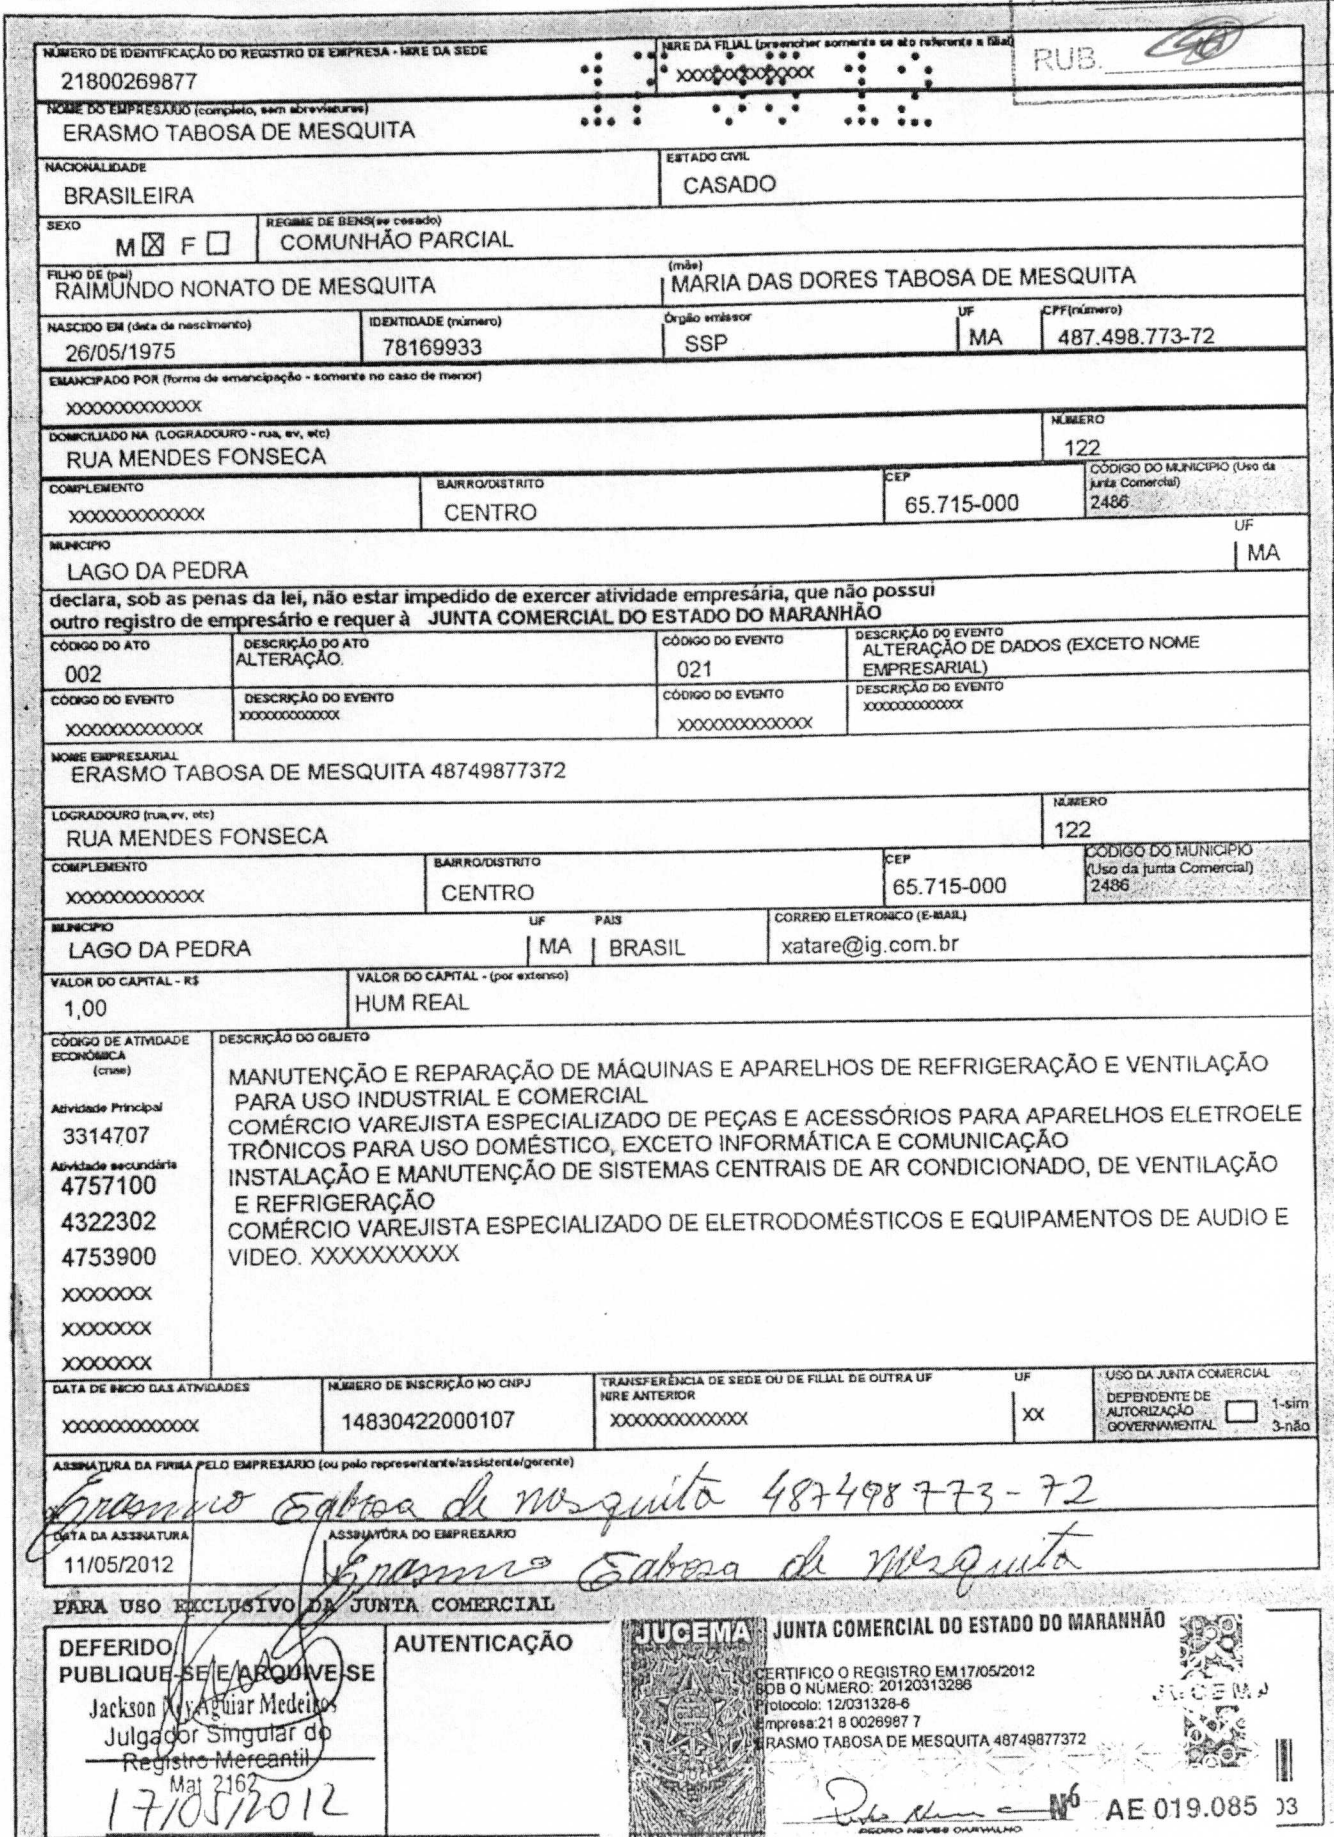 RUB.
NÚMERO DE IDENTIFICAÇÃO DO REGISTRO DE EMPRESA - NIRE DA SEDE
NIRE DA FILIAL (preencher somente se ato referente a filial)
21800269877
XXXXXXXXXXXXX
NOME DO EMPRESÁRIO (completo, sem abreviaturas)
ERASMO TABOSA DE MESQUITA
NACIONALIDADE
ESTADO CIVIL
BRASILEIRA
CASADO
SEXO
REGIME DE BENS(se casado)
M ☒ F ☐
COMUNHÃO PARCIAL
FILHO DE (pai)
(mãe)
RAIMUNDO NONATO DE MESQUITA
MARIA DAS DORES TABOSA DE MESQUITA
NASCIDO EM (data de nascimento)
IDENTIDADE (número)
Órgão emissor
UF
CPF(número)
26/05/1975
78169933
SSP
MA
487.498.773-72
EMANCIPADO POR (forma de emancipação - somente no caso de menor)
XXXXXXXXXXXXX
DOMICILIADO NA (LOGRADOURO - rua, av, etc)
NÚMERO
RUA MENDES FONSECA
122
COMPLEMENTO
BAIRRO/DISTRITO
CEP
CÓDIGO DO MUNICIPIO (Uso da junta Comercial)
XXXXXXXXXXXXX
CENTRO
65.715-000
2486
MUNICIPIO
UF
LAGO DA PEDRA
MA
declara, sob as penas da lei, não estar impedido de exercer atividade empresária, que não possui
outro registro de empresário e requer à JUNTA COMERCIAL DO ESTADO DO MARANHÃO
CÓDIGO DO ATO
DESCRIÇÃO DO ATO
CÓDIGO DO EVENTO
DESCRIÇÃO DO EVENTO
002
ALTERAÇÃO.
021
ALTERAÇÃO DE DADOS (EXCETO NOME
EMPRESARIAL)
CÓDIGO DO EVENTO
DESCRIÇÃO DO EVENTO
CÓDIGO DO EVENTO
DESCRIÇÃO DO EVENTO
XXXXXXXXXXXXX
XXXXXXXXXXXXX
XXXXXXXXXXXXX
XXXXXXXXXXXXX
NOME EMPRESARIAL
ERASMO TABOSA DE MESQUITA 48749877372
LOGRADOURO (rua,av, etc)
NÚMERO
RUA MENDES FONSECA
122
COMPLEMENTO
BAIRRO/DISTRITO
CEP
CODIGO DO MUNICIPIO
(Uso da junta Comercial)
XXXXXXXXXXXXX
CENTRO
65.715-000
2486
MUNICIPIO
UF
PAIS
CORREIO ELETRONICO (E-MAIL)
LAGO DA PEDRA
MA
BRASIL
xatare@ig.com.br
VALOR DO CAPITAL - R$
VALOR DO CAPITAL - (por extenso)
1,00
HUM REAL
CÓDIGO DE ATIVIDADE
ECONÔMICA
(cnae)
DESCRIÇÃO DO OBJETO
Atividade Principal
3314707
Atividade secundária
4757100
4322302
4753900
XXXXXXX
XXXXXXX
XXXXXXX
MANUTENÇÃO E REPARAÇÃO DE MÁQUINAS E APARELHOS DE REFRIGERAÇÃO E VENTILAÇÃO
PARA USO INDUSTRIAL E COMERCIAL
COMÉRCIO VAREJISTA ESPECIALIZADO DE PEÇAS E ACESSÓRIOS PARA APARELHOS ELETROELE
TRÔNICOS PARA USO DOMÉSTICO, EXCETO INFORMÁTICA E COMUNICAÇÃO
INSTALAÇÃO E MANUTENÇÃO DE SISTEMAS CENTRAIS DE AR CONDICIONADO, DE VENTILAÇÃO
E REFRIGERAÇÃO
COMÉRCIO VAREJISTA ESPECIALIZADO DE ELETRODOMÉSTICOS E EQUIPAMENTOS DE AUDIO E
VIDEO. XXXXXXXXXX
DATA DE INICIO DAS ATIVIDADES
NÚMERO DE INSCRIÇÃO NO CNPJ
TRANSFERÊNCIA DE SEDE OU DE FILIAL DE OUTRA UF
NIRE ANTERIOR
UF
USO DA JUNTA COMERCIAL
XXXXXXXXXXXXX
14830422000107
XXXXXXXXXXXXX
XX
DEPENDENTE DE
AUTORIZAÇÃO
GOVERNAMENTAL
1-sim
3-não
ASSINATURA DA FIRMA PELO EMPRESARIO (ou pelo representante/assistente/gerente)
Erasmo Tabosa de Mesquita 487498773-72
DATA DA ASSINATURA
ASSINATURA DO EMPRESARIO
11/05/2012
Erasmo Tabosa de Mesquita
PARA USO EXCLUSIVO DA JUNTA COMERCIAL
DEFERIDO
PUBLIQUE-SE E ARQUIVE-SE
Jackson Ney Aguiar Medeiros
Julgador Singular do
Registro Mercantil
Mat 2162
17/05/2012
AUTENTICAÇÃO
JUCEMA
JUNTA COMERCIAL DO ESTADO DO MARANHÃO
CERTIFICO O REGISTRO EM 17/05/2012
SOB O NÚMERO: 20120313286
Protocolo: 12/031328-6
Empresa:21 8 0026987 7
ERASMO TABOSA DE MESQUITA 48749877372
JUCEMA
PEDRO NEVES CARVALHO
Nº AE 019.085
03